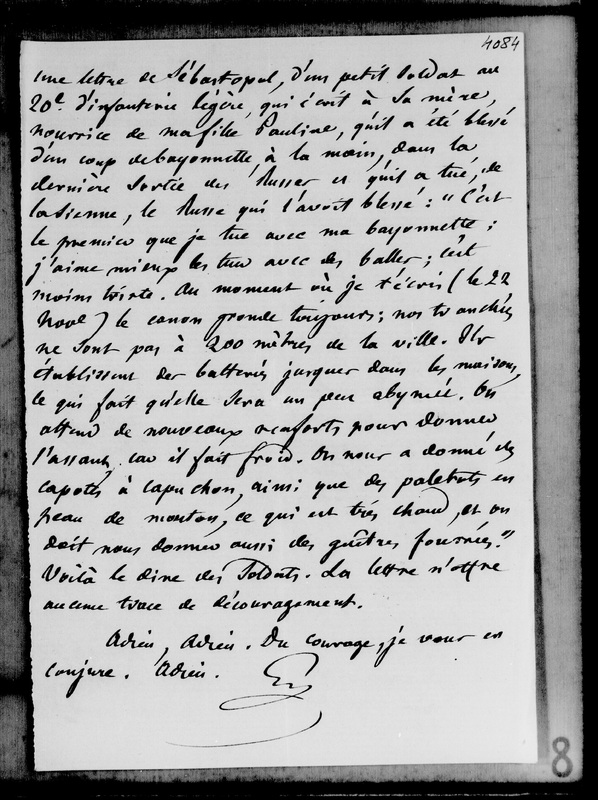 4084
une lettre de Sébastopol, d'un petit soldat au
20e. d'infanterie légère, qui écrit à sa mère,
nourrice de ma fille Pauline, qu'il a été blessé
d'un coup de bayonnette, à la main, dans la
dernière sortie des Russes et qu'il a tué, de
la sienne, le Russe qui l'avait blessé : "C'est
le premier que je tue avec ma bayonnette ;
j'aime mieux les tuer avec des balles ; c'est
moins triste. Au moment où je t'écris (le 22
Nove) le canon gronde toujours ; nos tranchées
ne sont pas à 200 mètres de la ville. Ils
établissent des batteries jusques dans les maisons,
ce qui fait qu'elle sera un peu abymée. On
attend de nouveaux renforts pour donner
l'assaut, car il fait froid. On nous a donné des
capotes à capuchon, ainsi que des paletots en
peau de mouton, ce qui est très chaud, et on
doit nous donner aussi des guêtres fourrées."
Voilà le dire des Soldats. La lettre n'offre
aucune trace de découragement.
Adieu, Adieu. Du courage, je vous en
conjure. Adieu.
8